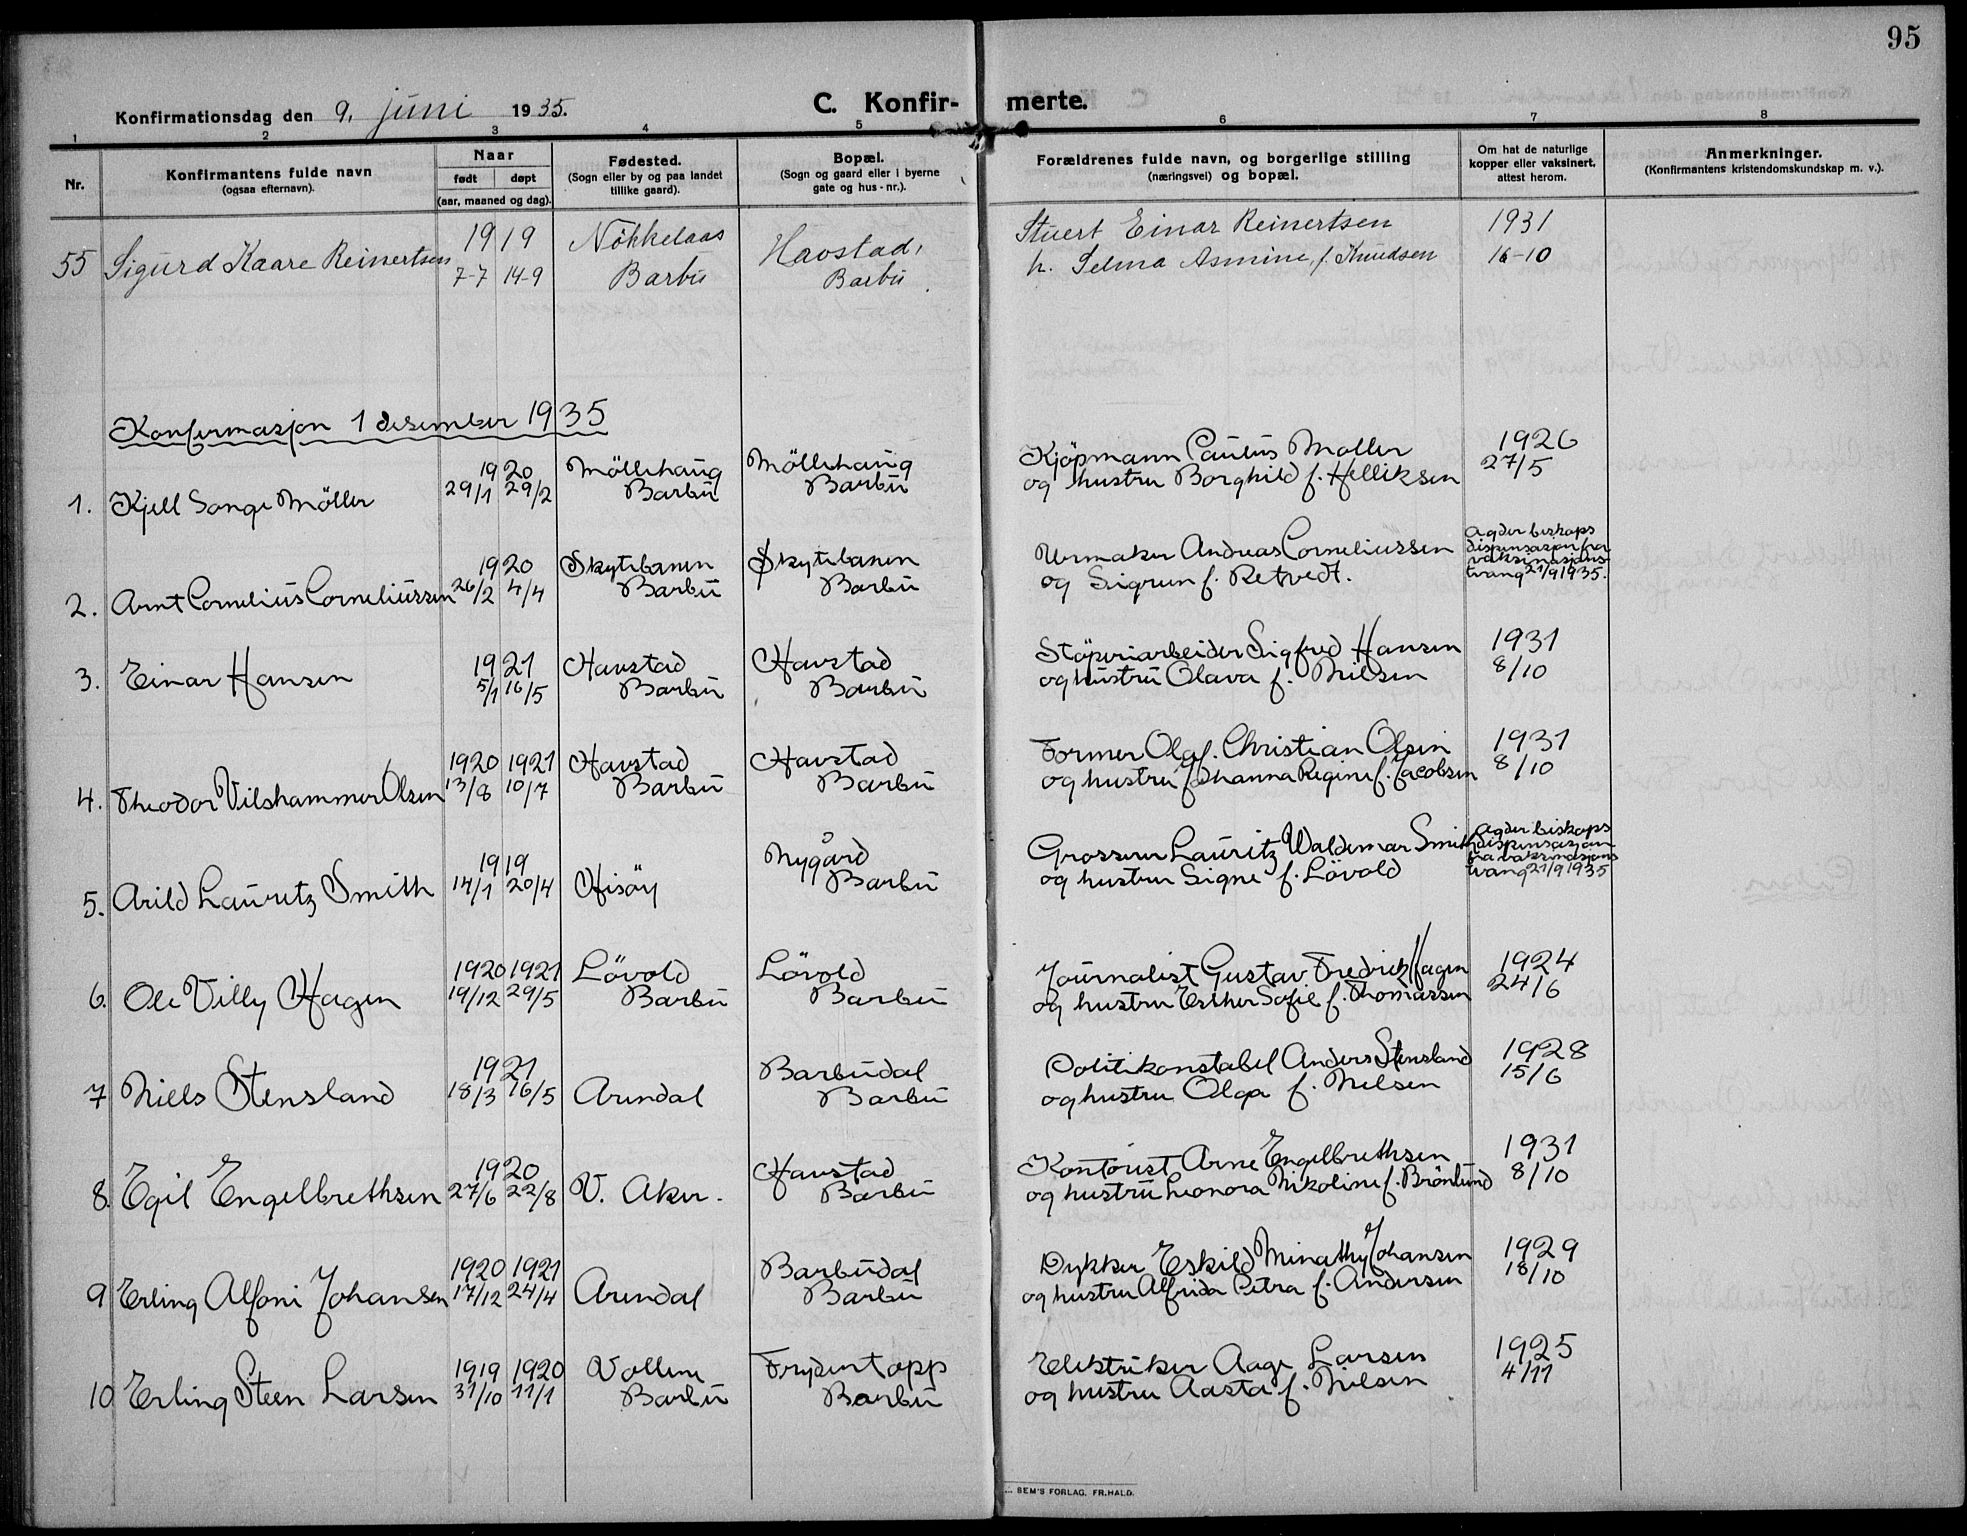 95
Konfirmationsdag den 9. juni 1935.
C. Konfir- merte.
1 2 3 4 5 6 7 8
Nr.
Konfirmantens fulde navn
(ogsaa efternavn).
Naar
født døpt
(aar, maaned og dag).
Fødested.
(Sogn eller by og paa landet
tillike gaard).
Bopæl.
(Sogn og gaard eller i byerne
gate og hus-nr.).
Forældrenes fulde navn, og borgerlige stilling
(næringsvei) og bopæl.
Om hat de naturlige
kopper eller vaksinert,
attest herom.
Anmerkninger.
(Konfirmantens kristendomskundskap m. v.).
1919 Nökkelaas Havstad, Stuert Einar Reinertsen 1931
55 Sigurd Kaare Reinertsen 7-7 14-9 Barbu Barbu h. Selma Asmine, f. Knudsen 16-10
Konfirmasjon 1 desember 1935
1920 Möllehaug Möllehaug Kjöpmann Paulus Møller 1926
1. Kjell Songe Möller 29/1 29/2 Barbu Barbu og hustru Borghild f. Helliksen 27/5
1920 Skytebanen Skytebanen Urmaker Andreas Corneliussen Agder biskops
dispensasjon fra
vaksinasjons-
2. Arnt Cornelius Corneliussen 26/2 4/4 Barbu Barbu og Sigrun f. Retvedt. tvang 21/9 1935.
1921 Havstad Havstad Støperiarbeider Sigfred Hansen 1931
3. Einar Hansen 5/1 16/5 Barbu Barbu og hustru Olava f. Nilsen 8/10
1920 1921 Havstad Havstad Former Olaf Christian Olsen 1931
4. Theodor Vilshammer Olsen 13/8 10/7 Barbu Barbu og hustru Johanna Regine f. Jacobsen 8/10
1919 Nygård Grosserer Lauritz Waldemar Smith Agder biskops
dispensasjon
fra vaksinasjons
5. Arild Lauritz Smith 14/1 20/4 Hisöy Barbu og hustru Signe f. Lövold tvang 21/9 1935
1920 1921 Lövold Lövold Journalist Gustav Fredrik Hagen 1924
6. Ole Villy Hagen 19/12 29/5 Barbu Barbu og hustru Esther Sofie f. Thomassen 24/6
1921 Barbudal Politikonstabel Anders Stensland 1928
7 Niels Stensland 18/3 16/5 Arendal Barbu og hustru Olga f. Nielsen 15/6
1920 Havstad Kontorist Arne Engelbrethsen 1931
8. Egil Engelbrethsen 27/6 22/8 V. Aker. Barbu og hustru Leonora Nikoline f. Brönlund 8/10
1920 1921 Barbudal Dykker Eskild Minathy Johansen 1929
9 Erling Alfoni Johansen 17/12 24/4 Arendal Barbu og hustru Alfrida Petra f. Andersen 18/10
1919 1920 Vollene Frydentopp Elektriker Aage Larsen 1925
10 Erling Steen Larsen 31/10 11/1 Barbu Barbu og hustru Aasta f. Nilsen 4/11
SEM'S FORLAG. FR.HALD.